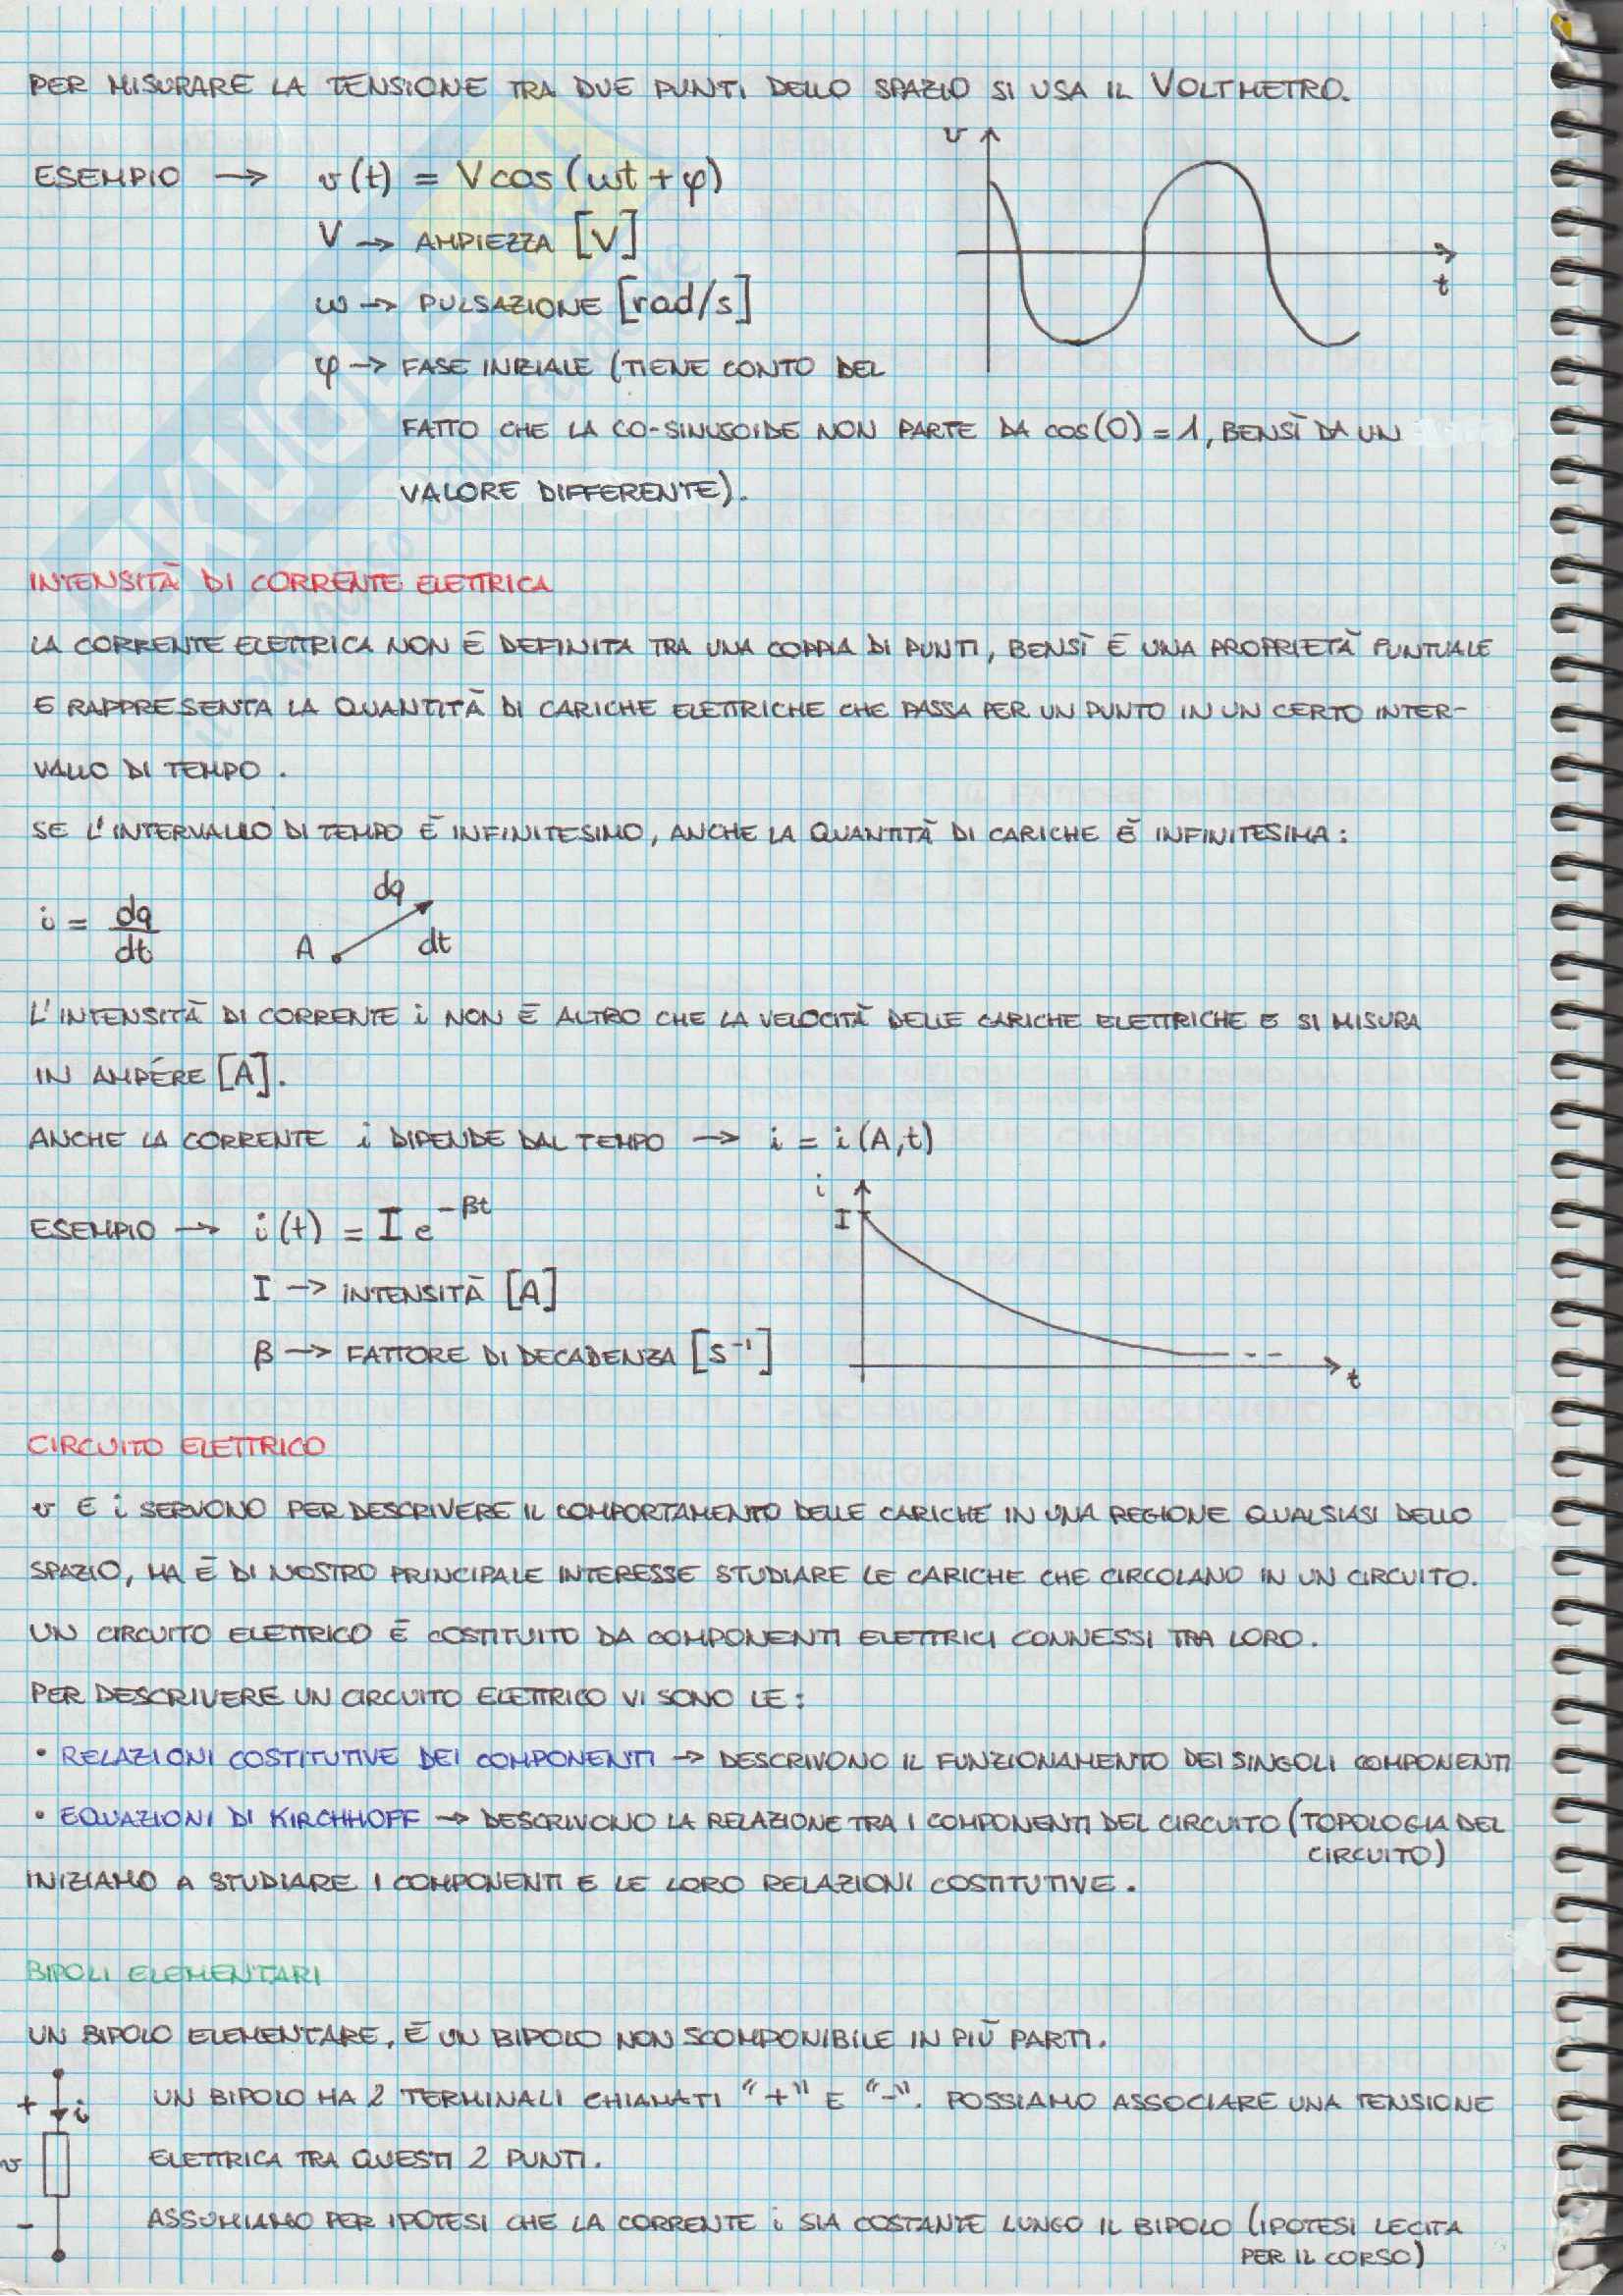 PER MISURARE LA TENSIONE TRA DUE PUNTI DELLO SPAZIO SI USA IL VOLTMETRO.
ESEMPIO → v(t) = V cos(ωt + φ)
V → AMPIEZZA [V]
ω → PULSAZIONE [rad/s]
φ → FASE INIZIALE (TIENE CONTO DEL
FATTO CHE LA CO-SINUSOIDE NON PARTE DA cos(0) = 1, BENSÌ DA UN
VALORE DIFFERENTE).
v
t
INTENSITÀ DI CORRENTE ELETTRICA
LA CORRENTE ELETTRICA NON È DEFINITA TRA UNA COPPIA DI PUNTI, BENSÌ È UNA PROPRIETÀ PUNTUALE
E RAPPRESENTA LA QUANTITÀ DI CARICHE ELETTRICHE CHE PASSA PER UN PUNTO IN UN CERTO INTER-
VALLO DI TEMPO.
SE L'INTERVALLO DI TEMPO È INFINITESIMO, ANCHE LA QUANTITÀ DI CARICHE È INFINITESIMA:
i = dq/dt
A dq dt
L'INTENSITÀ DI CORRENTE i NON È ALTRO CHE LA VELOCITÀ DELLE CARICHE ELETTRICHE E SI MISURA
IN AMPÉRE [A].
ANCHE LA CORRENTE i DIPENDE DAL TEMPO → i = i(A,t)
ESEMPIO → i(t) = I e^-βt
I → INTENSITÀ [A]
β → FATTORE DI DECADENZA [s⁻¹]
i
I
t
CIRCUITO ELETTRICO
v E i SERVONO PER DESCRIVERE IL COMPORTAMENTO DELLE CARICHE IN UNA REGIONE QUALSIASI DELLO
SPAZIO, MA È DI NOSTRO PRINCIPALE INTERESSE STUDIARE LE CARICHE CHE CIRCOLANO IN UN CIRCUITO.
UN CIRCUITO ELETTRICO È COSTITUITO DA COMPONENTI ELETTRICI CONNESSI TRA LORO.
PER DESCRIVERE UN CIRCUITO ELETTRICO VI SONO LE:
• RELAZIONI COSTITUTIVE DEI COMPONENTI → DESCRIVONO IL FUNZIONAMENTO DEI SINGOLI COMPONENTI
• EQUAZIONI DI KIRCHHOFF → DESCRIVONO LA RELAZIONE TRA I COMPONENTI DEL CIRCUITO (TOPOLOGIA DEL
CIRCUITO)
INIZIAMO A STUDIARE I COMPONENTI E LE LORO RELAZIONI COSTITUTIVE.
BIPOLI ELEMENTARI
UN BIPOLO ELEMENTARE, È UN BIPOLO NON SCOMPONIBILE IN PIÙ PARTI.
+ i
v
-
UN BIPOLO HA 2 TERMINALI CHIAMATI "+" E "-". POSSIAMO ASSOCIARE UNA TENSIONE
ELETTRICA TRA QUESTI 2 PUNTI.
ASSUMIAMO PER IPOTESI CHE LA CORRENTE i SIA COSTANTE LUNGO IL BIPOLO (IPOTESI LECITA
PER IL CORSO)